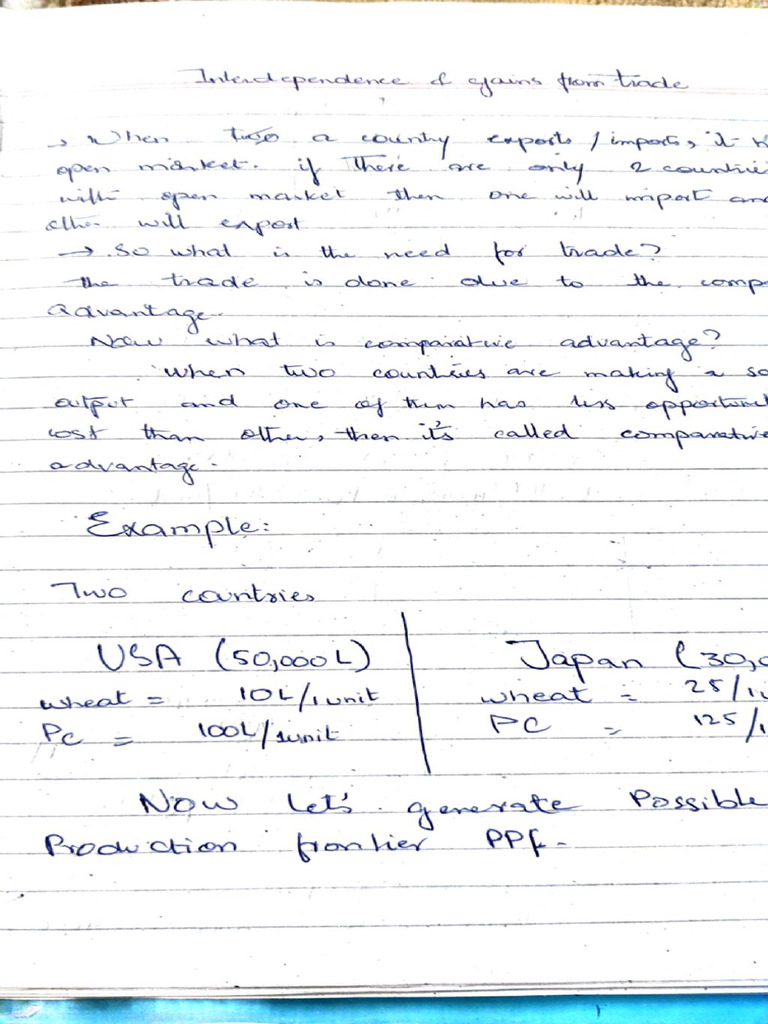 Interdependence & gains from trade
→ When two a country exports / imports, it
open market. if There are only 2 countrie
with open market then one will import an
other will export
→ So what is the need for trade?
the trade is done due to the comp
advantage.
Now what is comparative advantage?
when two countries are making a
output and one of them has less opportuni
cost than other, then it's called comparative
advantage.
Example:
Two countries
USA (50,000 L) Japan (30,0
wheat = 10L/1unit wheat = 25/1u
PC = 100L/1unit PC = 125/1
Now let's generate Possible
Production frontier PPf.